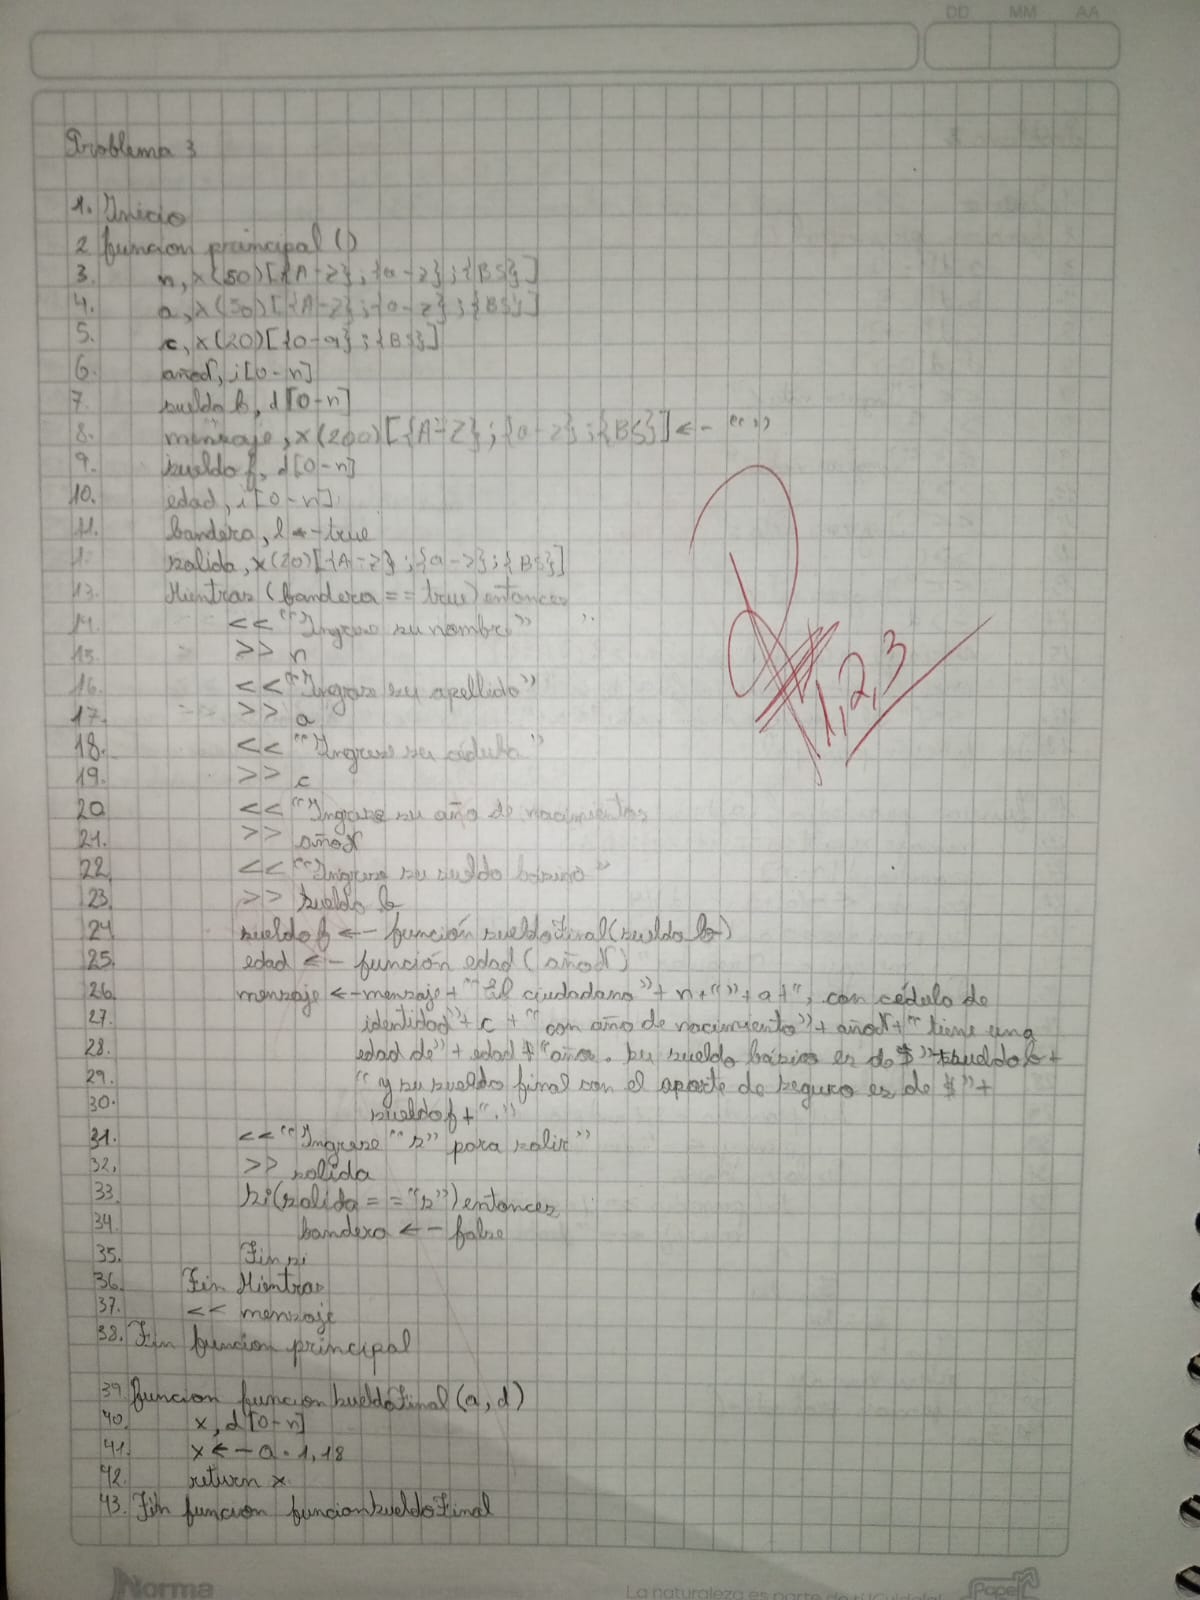 DD MM AA
Problema 3
1. Inicio
2 funcion principal ()
3. n, x(50)[{A-Z};{a-z};{BS}]
4. a, x(50)[{A-Z};{a-z};{BS}]
5. c, x(20)[{0-9};{BS}]
6. añoN, i[0-n]
7. sueldo b, d[0-n]
8. mensaje, x(200)[{A-Z};{a-z};{BS}]<- “”
9. sueldo f, d[0-n]
10. edad, i[0-n]
11. bandera, l <- true
1 salida, x(20)[{A-Z};{a-z};{BS}]
13. Mientras (bandera == true) entonces
14. << “Ingrese su nombre”
15. >> n
16. << “Ingrese su apellido”
17. >> a
18. << “Ingrese su cédula”
19. >> c
20 << “Ingrese su año de nacimientos
21. >> añoN
22 << “Ingrese su sueldo básico”
23 >> sueldo b
24 sueldo f <- función sueldoFinal(sueldo b)
25. edad <- función edad (añoN)
26 mensaje <- mensaje + “El ciudadano” + n + “ ” + a + “, con cédula de
27. identidad” + c + “ con año de nacimiento” + añoN + “ tiene una
28. edad de” + edad + “años. Su sueldo básico es de $” + sueldo b +
29. “ y su sueldo final con el aporte de seguro es de $” +
30. sueldo f + “.”
31. << “Ingrese “s” para salir”
32, >> salida
33 si(salida == “s”) entonces
34. bandera <- false
35. Fin si
36 Fin Mientras
37. << mensaje
38. Fin funcion principal
39 funcion funcionSueldoFinal (a, d)
40. x, d[0-n]
41. x <- a · 1,18
42. return x
43. Fin funcion funcionSueldoFinal
1, 2, 3
Norma
La naturaleza es parte de